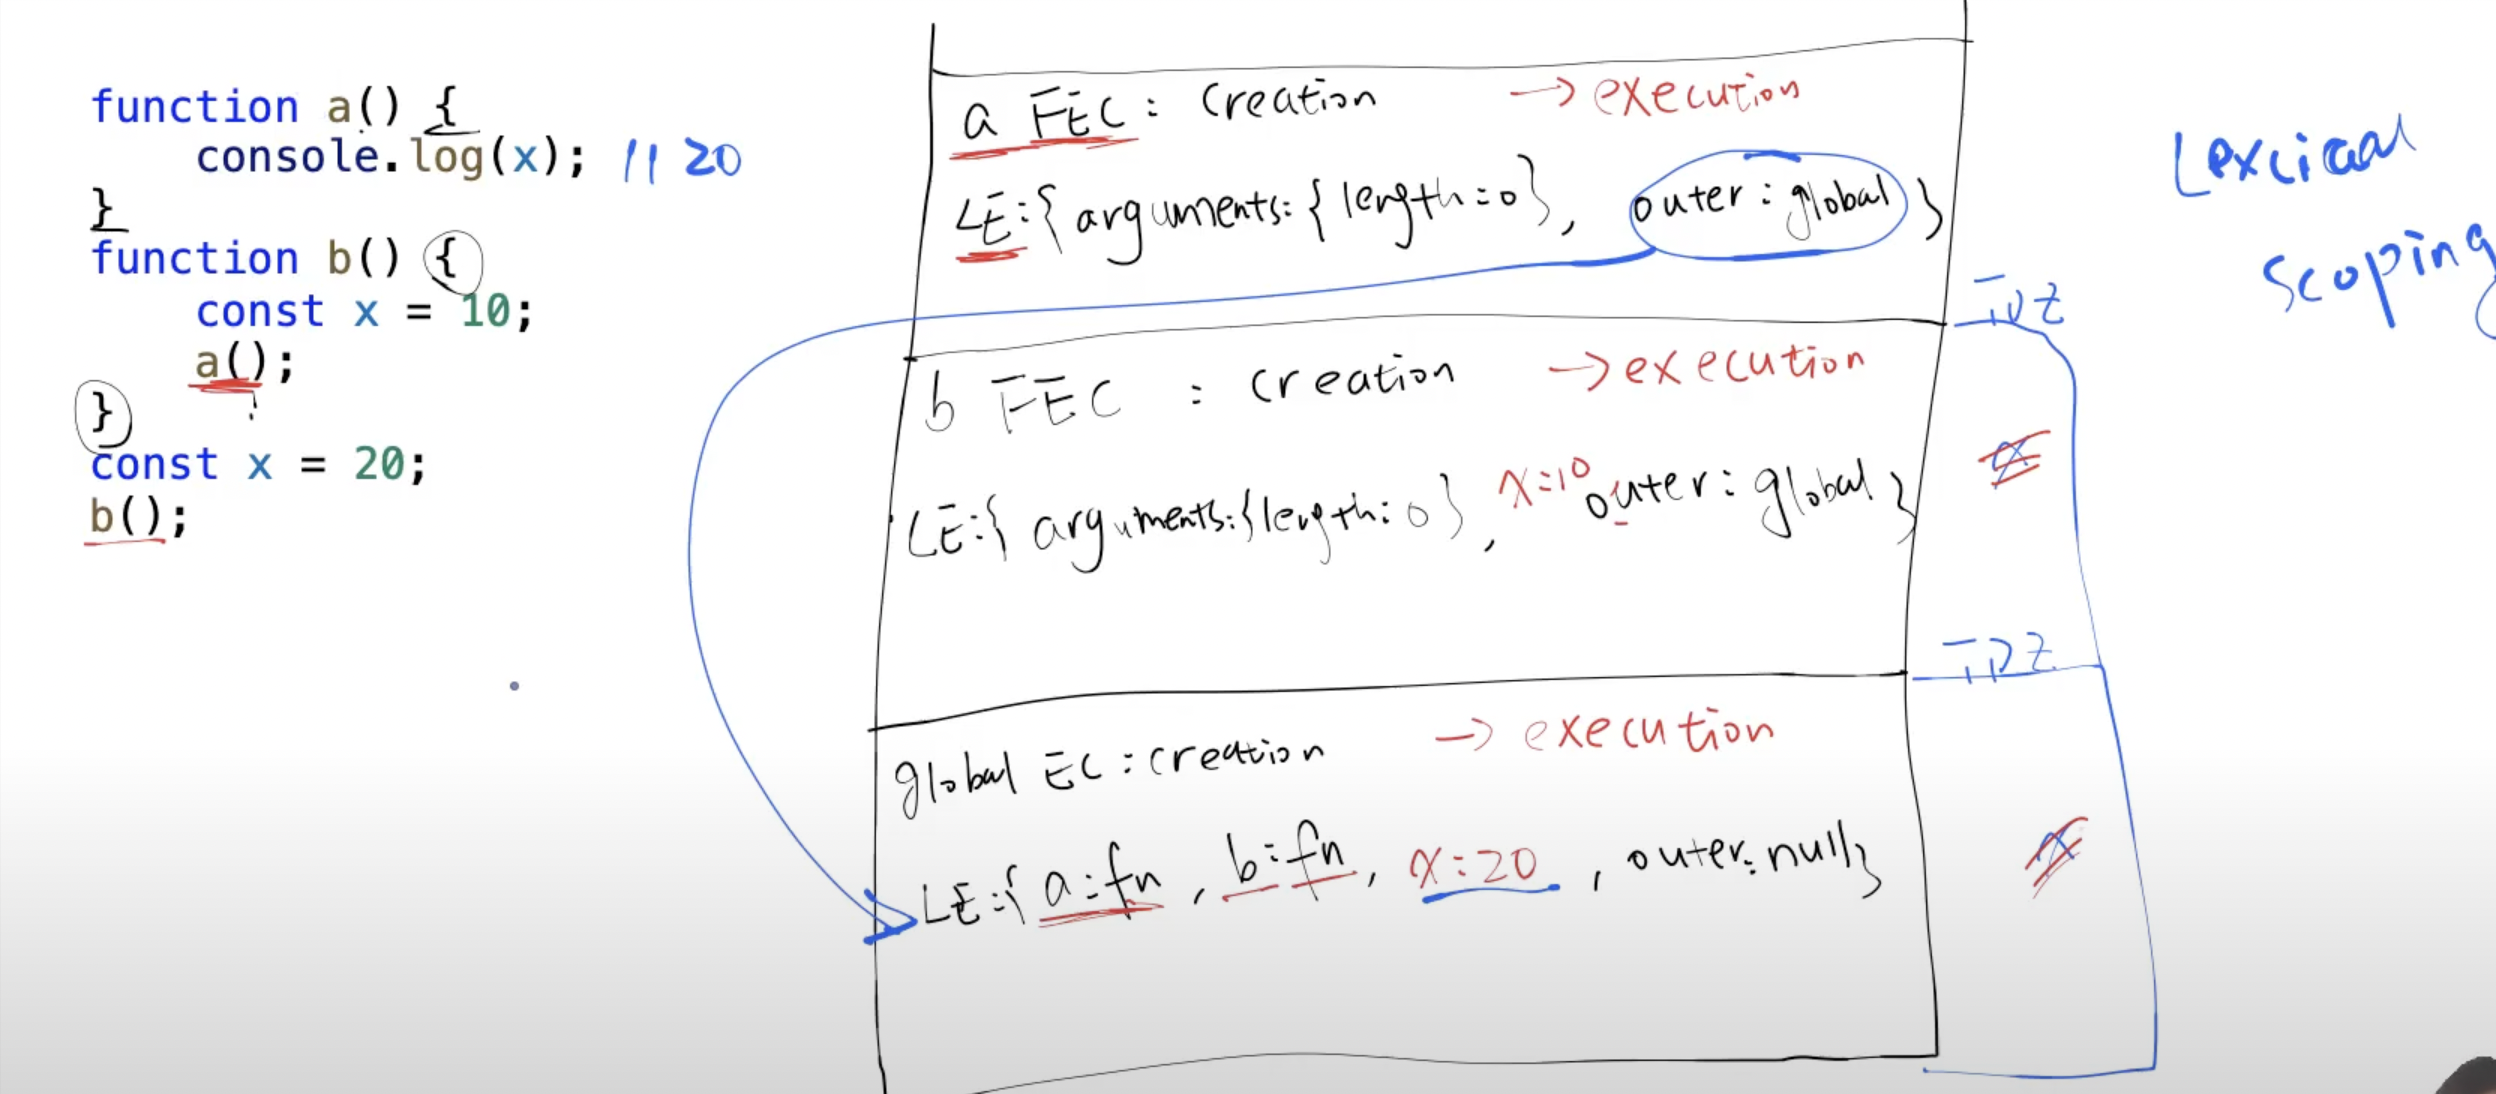 function a() {
console.log(x); // 20
}
function b() {
const x = 10;
a();
}
const x = 20;
b();
a FEC : Creation → execution
LE:{ arguments: { length:0}, outer : global }
TDZ
b FEC : Creation → execution
x
LE:{ arguments:{length: 0}, x:10 outer: global }
TDZ
global EC : creation → execution
x
LE:{ a:fn, b:fn, x:20, outer:null}
Lexcical
Scoping